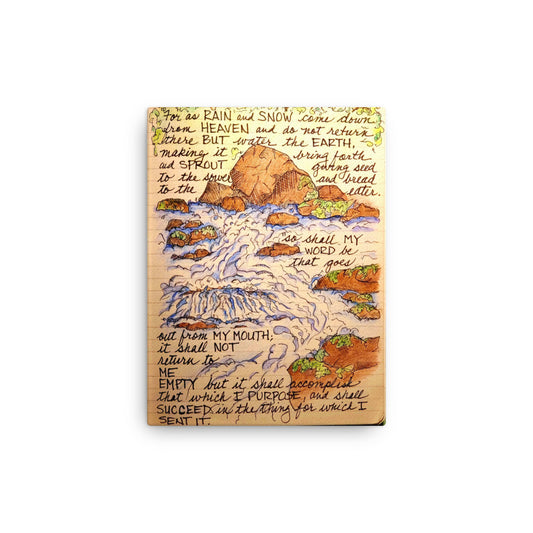 For as RAIN and SNOW come down
from HEAVEN and do not return
there BUT water the EARTH,
making it bring forth
and SPROUT giving seed
to the sower and bread
to the eater.
"so shall MY
WORD be
that goes
out from MY MOUTH;
it shall NOT
return to
ME
EMPTY but it shall accomplish
that which I PURPOSE, and shall
SUCCEED in the thing for which I
SENT IT.